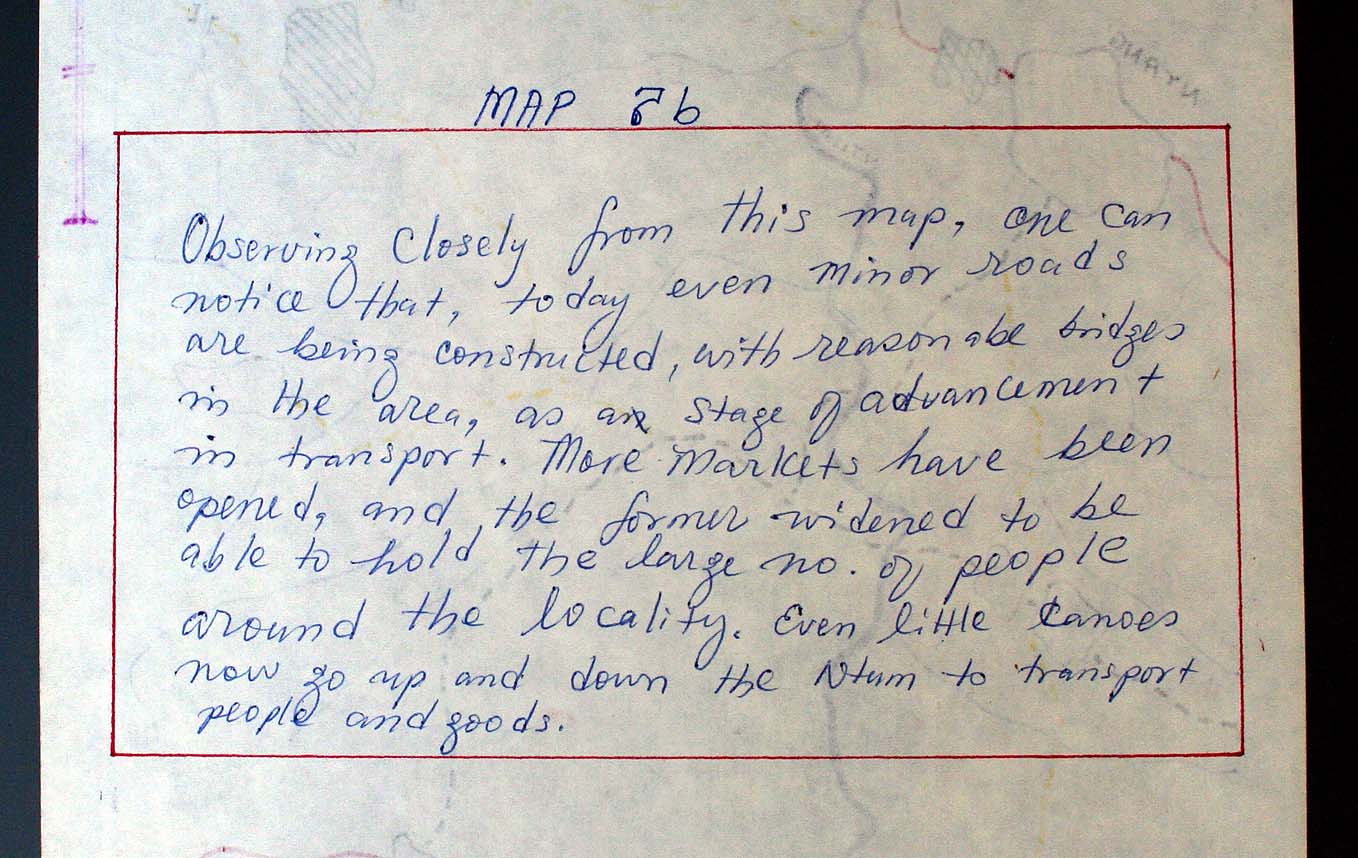 MAP
Observing closely from this map, one can
notice that, today even minor roads
are being constructed, with reasonabe bridges
in the area, as a stage of advancement
in transport. More markets have been
opened, and the former widened to be
able to hold the large no. of people
around the locality. Even little canoes
now go up and down the Ntum to transport
people and goods.